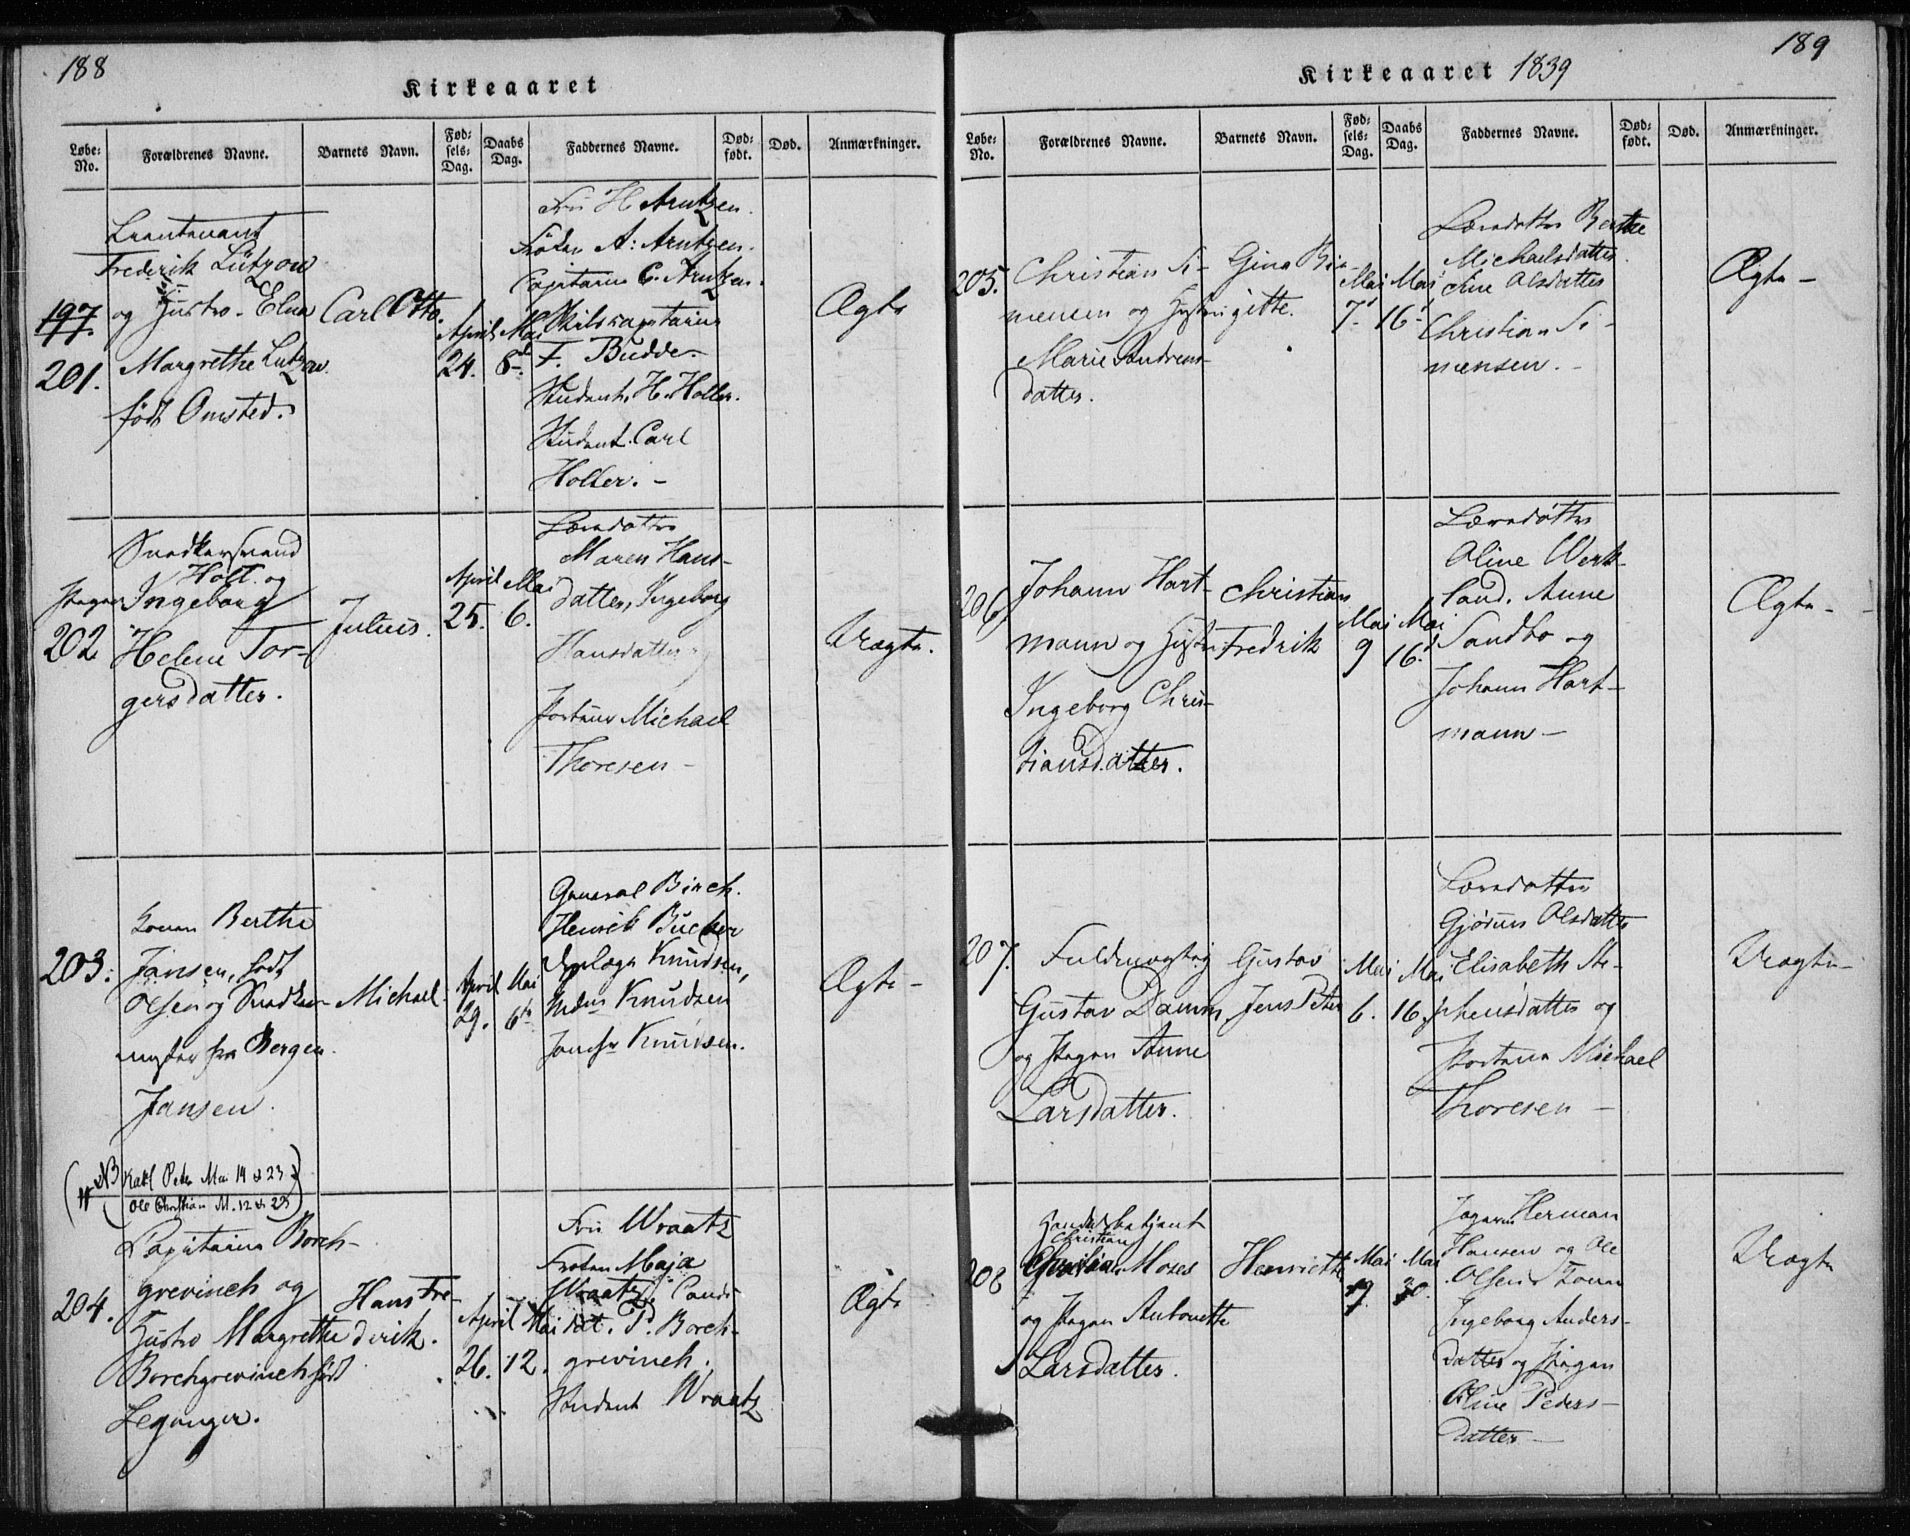 188
Kirkeaaret
Løbe-No.
Forældrenes Navne.
Barnets Navn.
Fødsels-Dag.
Daabs Dag.
Faddernes Navne.
Dødfødt.
Død.
Anmærkninger.
197.
201.
Lieutenant
Frederik Lützow
og Hustro Elna
Margrethe Lützow
født Omsted.
Carl Otto.
April
24.
Mai
8d
Fru H Arntzen.
Frøken A: Arntzen.
Capitaine C. Arntzen.
Skibscapitaine
F. Budde.
Student H. Holter.
Student Carl
Holter. –
Ægte
202
Snedkersvend
Holt og
Pigen Ingeborg
Helene Tor-
gersdatter.
Julius.
April
25.
Mai
6.
Maren Hans-
datter, Ingeborg
Hansdatter
Portner Michael
Thoresen –
Uægte.
203.
Konen Berthe
Jansen, født
Olsen og Snedker-
mester fra Bergen
Jansen.
Michael
April
29.
Mai
6te
General Birch.
Henrik Bucher
Knudsen,
Mdm Knudsen
Jomfr Knudsen.
Ægte –
NB Karl Peter Mai 14 & 23
Ole Christian M. 12 & 23
204.
Capitaine Borch-
grevinck og
Hustro Margrethe
Borchgrevinck født
Leganger.
Hans Fre-
derik.
April
26.
Mai
12.
Fru Wraatz
Frøken Maja
Wraatz, Candi-
dat. P. Borch-
grevinck.
Student Wraatz
Ægte
189
Kirkeaaret 1839
Løbe-No.
Forældrenes Navne.
Barnets Navn.
Fødsels-Dag.
Daabs Dag.
Faddernes Navne.
Dødfødt.
Død.
Anmærkninger.
205.
Christian Si-
mensen og Hustru
Marie Andreas-
datter.
Gina Bir-
gitte.
Mai
7.
Mai
16.
Berthe
Michaelsdatter.
Ane Olsdatter
Christian Si-
mensen. –
Ægte –
206.
Johann Hart-
mann og Hustru
Ingeborg Chris-
tiansdatter.
Christian
Fredrik
Mai
9
Mai
16.
Oline Werk-
land, Anne
Sandbo og
Johann Hart-
mann –
Ægte –
207.
Fuldmægtig
Gustav Damm
og Pigen Anne
Larsdatter.
Gustav
Jens Peter
Mai
6.
Mai
16.
Gjørun Olsdatter
Elisabeth Ste-
phensdatter og
Portner Michael
Thoresen –
Uægte –
208
Handelsbetjent
Christian
Moses
og Pigen Antonette
Larsdatter.
Henriette
Mai
Mai
Herman
Hansen og Ole
Olsen Konen
Ingeborg Anders-
datter og Pigen
Oline Peders-
datter –
Uægte